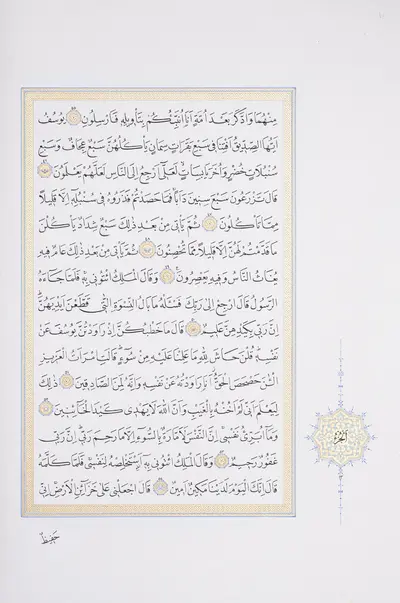 مِنْهُمَا وَادَّكَرَ بَعْدَ اُمَّةٍ اَنَا اُنَبِّئُكُمْ بِتَأْوِيلِهِ فَاَرْسِلُونِ يُوسُفُ
اَيُّهَا الصِّدِّيقُ اَفْتِنَا فِي سَبْعِ بَقَرَاتٍ سِمَانٍ يَأْكُلُهُنَّ سَبْعٌ عِجَافٌ وَسَبْعِ
سُنْبُلَاتٍ خُضْرٍ وَاُخَرَ يَابِسَاتٍ لَعَلِّي اَرْجِعُ اِلَى النَّاسِ لَعَلَّهُمْ يَعْلَمُونَ
قَالَ تَزْرَعُونَ سَبْعَ سِنِينَ دَاَبًا فَمَا حَصَدْتُمْ فَذَرُوهُ فِي سُنْبُلِهِ اِلَّا قَلِيلًا
مِمَّا تَأْكُلُونَ ثُمَّ يَأْتِي مِنْ بَعْدِ ذٰلِكَ سَبْعٌ شِدَادٌ يَأْكُلْنَ
مَا قَدَّمْتُمْ لَهُنَّ اِلَّا قَلِيلًا مِمَّا تُحْصِنُونَ ثُمَّ يَأْتِي مِنْ بَعْدِ ذٰلِكَ عَامٌ فِيهِ
يُغَاثُ النَّاسُ وَفِيهِ يَعْصِرُونَ وَقَالَ الْمَلِكُ ائْتُونِي بِهِ فَلَمَّا جَاءَهُ
الرَّسُولُ قَالَ ارْجِعْ اِلٰى رَبِّكَ فَسْـَٔلْهُ مَا بَالُ النِّسْوَةِ الّٰتِي قَطَّعْنَ اَيْدِيَهُنَّ
اِنَّ رَبِّي بِكَيْدِهِنَّ عَلِيمٌ قَالَ مَا خَطْبُكُنَّ اِذْ رَاوَدْتُنَّ يُوسُفَ عَنْ
نَفْسِهِ قُلْنَ حَاشَ لِلّٰهِ مَا عَلِمْنَا عَلَيْهِ مِنْ سُوءٍ قَالَتِ امْرَاَتُ الْعَزِيزِ
الْـٰٔنَ حَصْحَصَ الْحَقُّ اَنَا رَاوَدْتُهُ عَنْ نَفْسِهِ وَاِنَّهُ لَمِنَ الصَّادِقِينَ ذٰلِكَ
لِيَعْلَمَ اَنِّي لَمْ اَخُنْهُ بِالْغَيْبِ وَاَنَّ اللّٰهَ لَا يَهْدِي كَيْدَ الْخَائِنِينَ
وَمَا اُبَرِّئُ نَفْسِي اِنَّ النَّفْسَ لَاَمَّارَةٌ بِالسُّوءِ اِلَّا مَا رَحِمَ رَبِّي اِنَّ رَبِّي
غَفُورٌ رَحِيمٌ وَقَالَ الْمَلِكُ ائْتُونِي بِهِ اَسْتَخْلِصْهُ لِنَفْسِي فَلَمَّا كَلَّمَهُ
قَالَ اِنَّكَ الْيَوْمَ لَدَيْنَا مَكِينٌ اَمِينٌ قَالَ اجْعَلْنِي عَلٰى خَزَائِنِ الْاَرْضِ اِنِّي
حَفِيظٌ